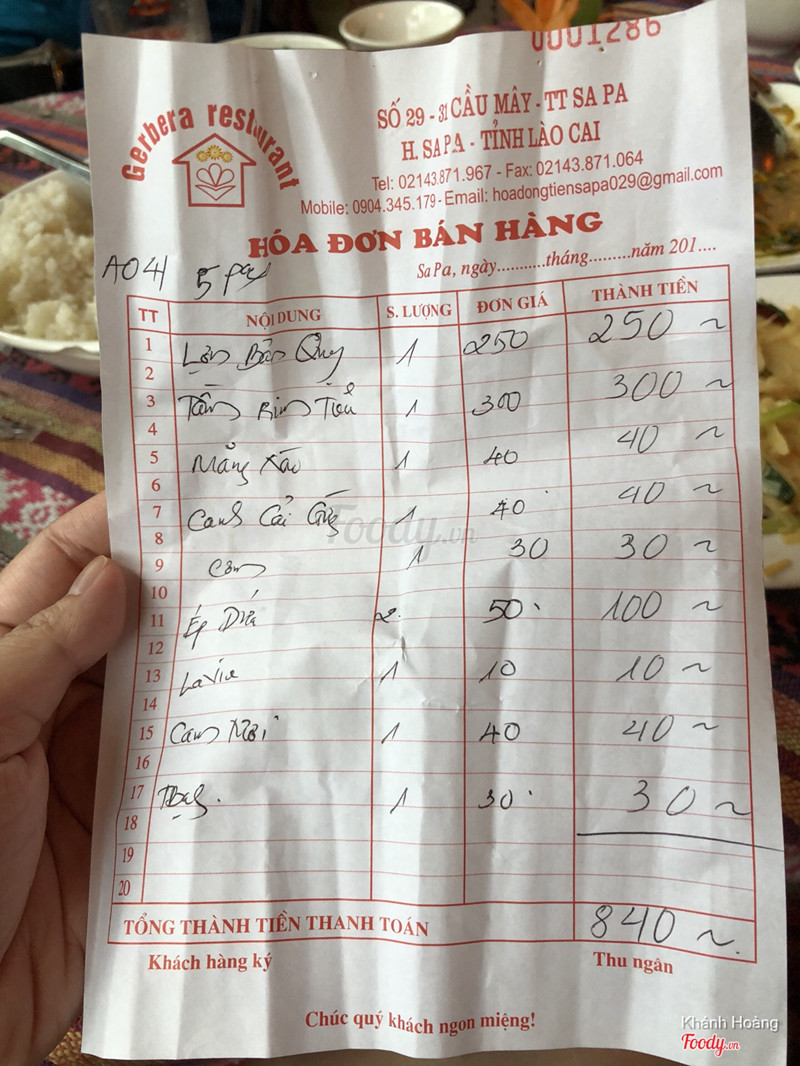 0001286
Gerbera restaurant
SỐ 29 - 31 CẦU MÂY - TT SA PA
H. SA PA - TỈNH LÀO CAI
Tel: 02143.871.967 - Fax: 02143.871.064
Mobile: 0904.345.179 - Email: hoadongtiensapa029@gmail.com
HÓA ĐƠN BÁN HÀNG
Sa Pa, ngày..........tháng.........năm 201....
A04 5 pax
TT NỘI DUNG S. LƯỢNG ĐƠN GIÁ THÀNH TIỀN
1 Lợn Bản 1 250 250 ~
2
3 Tầm Rim Tiêu 1 300 300 ~
4
5 Măng Xào 1 40 40 ~
6
7 Canh Cải Gừng 1 40 40 ~
8
9 Cơm 1 30 30 ~
10
11 Ép Dứa 2 50 100 ~
12
13 Lavie 1 10 10 ~
14
15 Cam 1 40 40 ~
16
17 1 30 30 ~
18
19
20
TỔNG THÀNH TIỀN THANH TOÁN 840 ~
Khách hàng ký Thu ngân
Chúc quý khách ngon miệng!
Foody.vn
Khánh Hoàng
Foody.vn